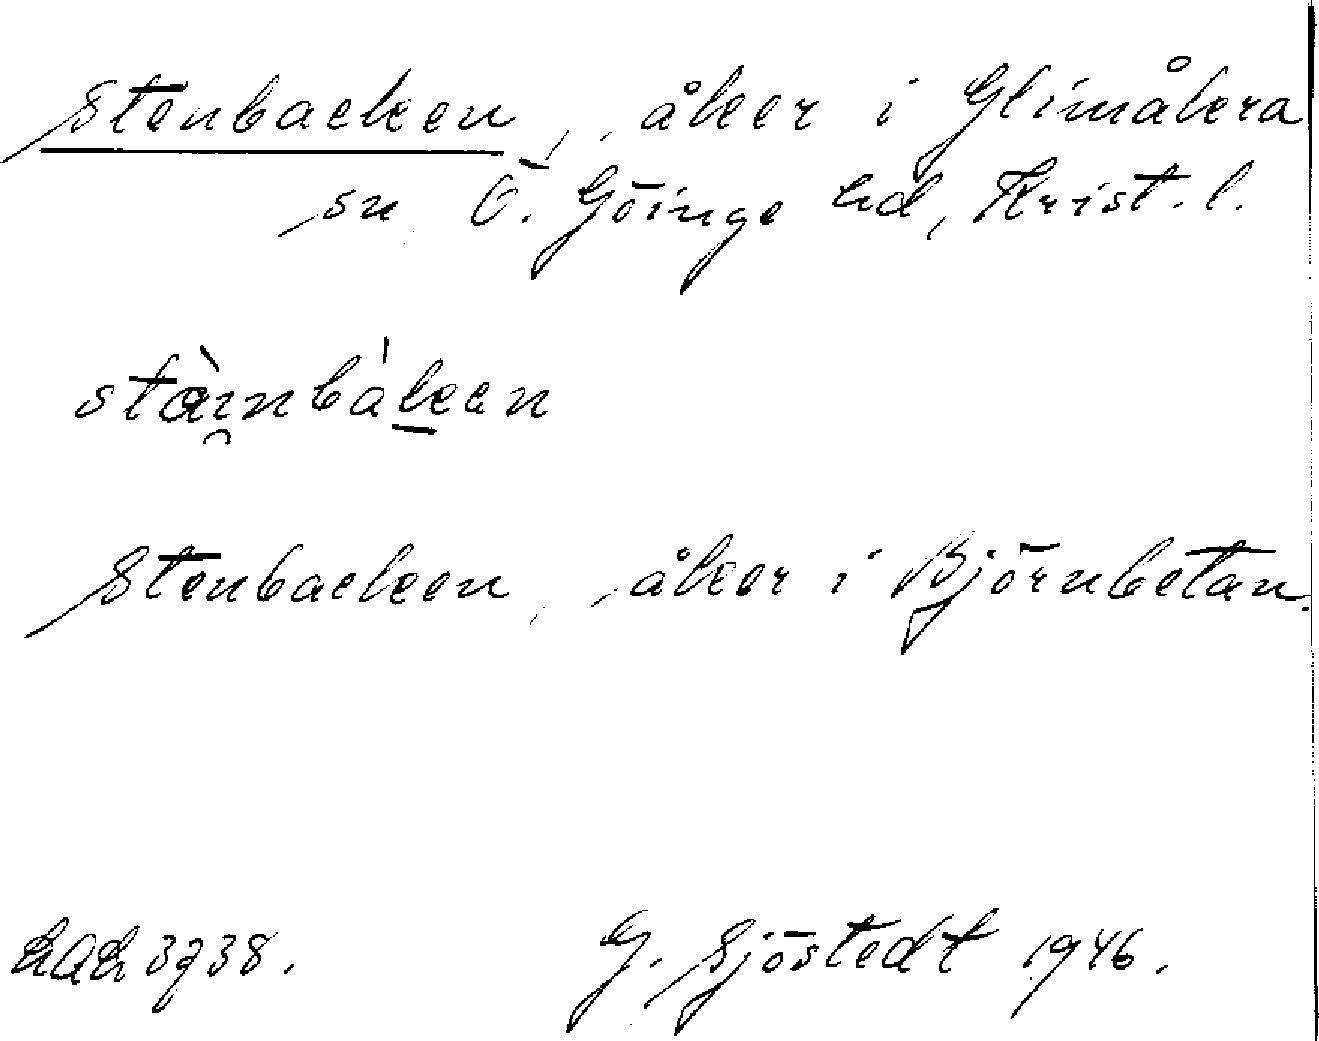 Stenbacken, åker i Glimåkra
sn Ö. Göinge hd, Krist. l.
stàinbàkan
Stenbacken, åker i Björnbetan.
3738. G. Sjöstedt 1946.